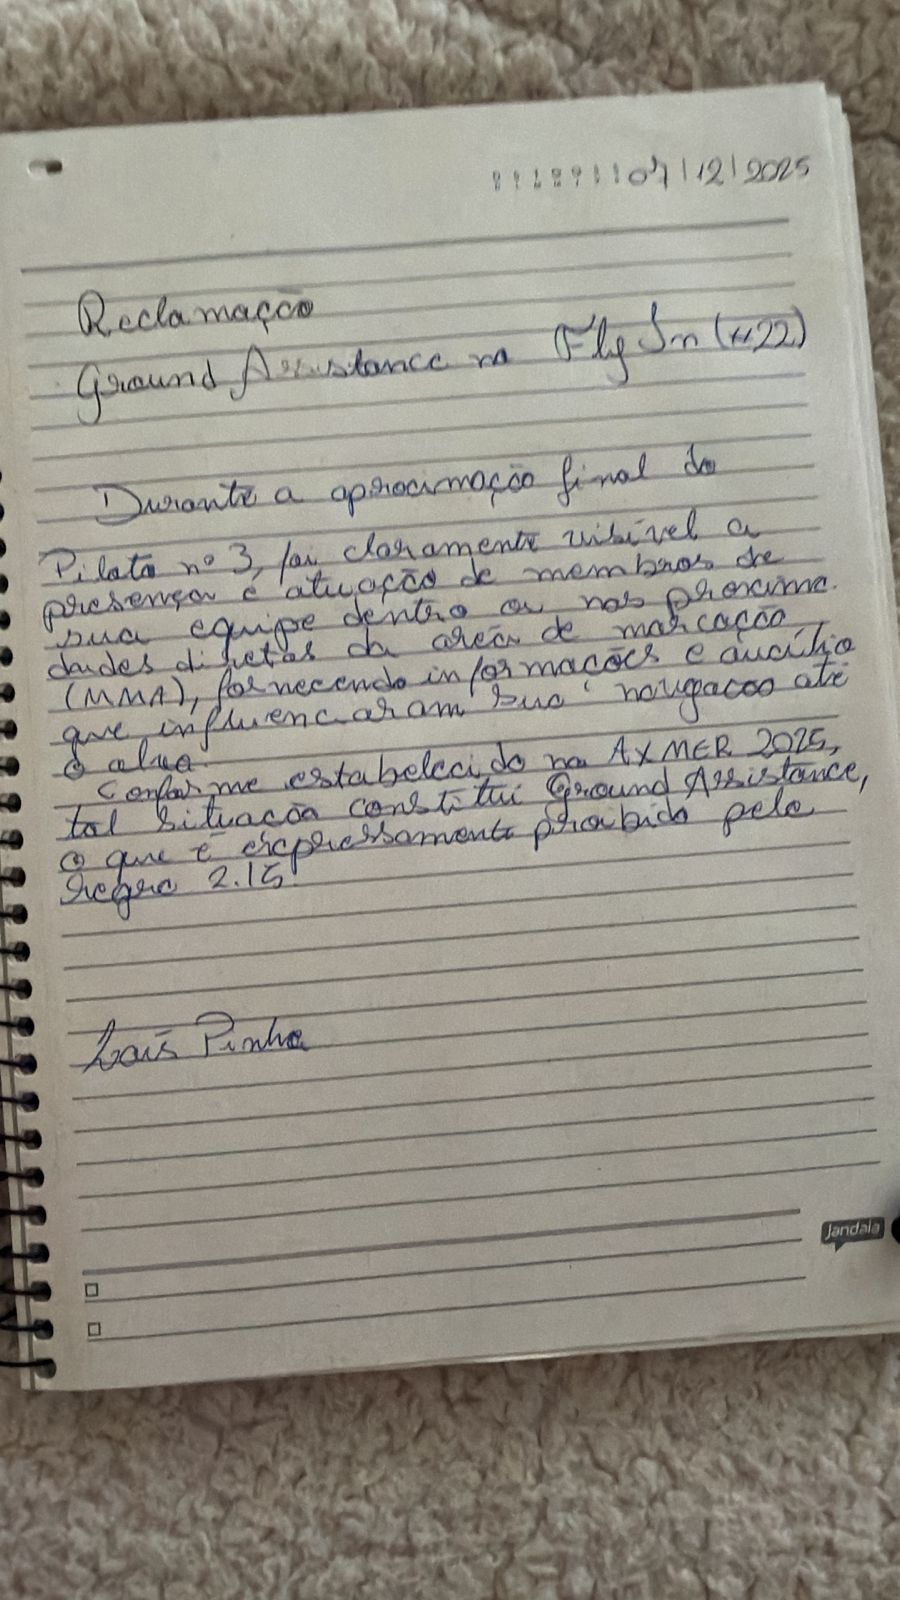 07/12/2025
Reclamação
Ground Assistance na Fly In (#22)
Durante a aproximação final do
Piloto nº 3, foi claramente visível a
presença e atuação de membros de
sua equipe dentro ou nas proxima-
dades diretas da area de marcação
(MMA), fornecendo informações e auxílio
que influenciaram sua navegacao até
o alvo.
Conforme estabelecido no AXMER 2025,
tal situacão constitui Ground Assistance,
o que é expressamente proibido pela
regra 2.15.
Laís Pinho
Jandaia